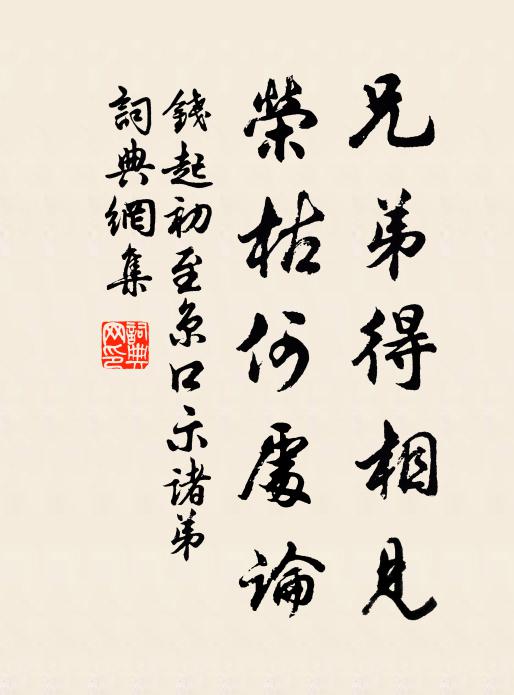 兄弟得相見
榮枯何處論
錢起初至京口示諸弟
詞典網集
詞典
网印